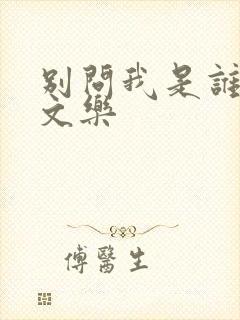 別問我是誰
文樂
傅醫生